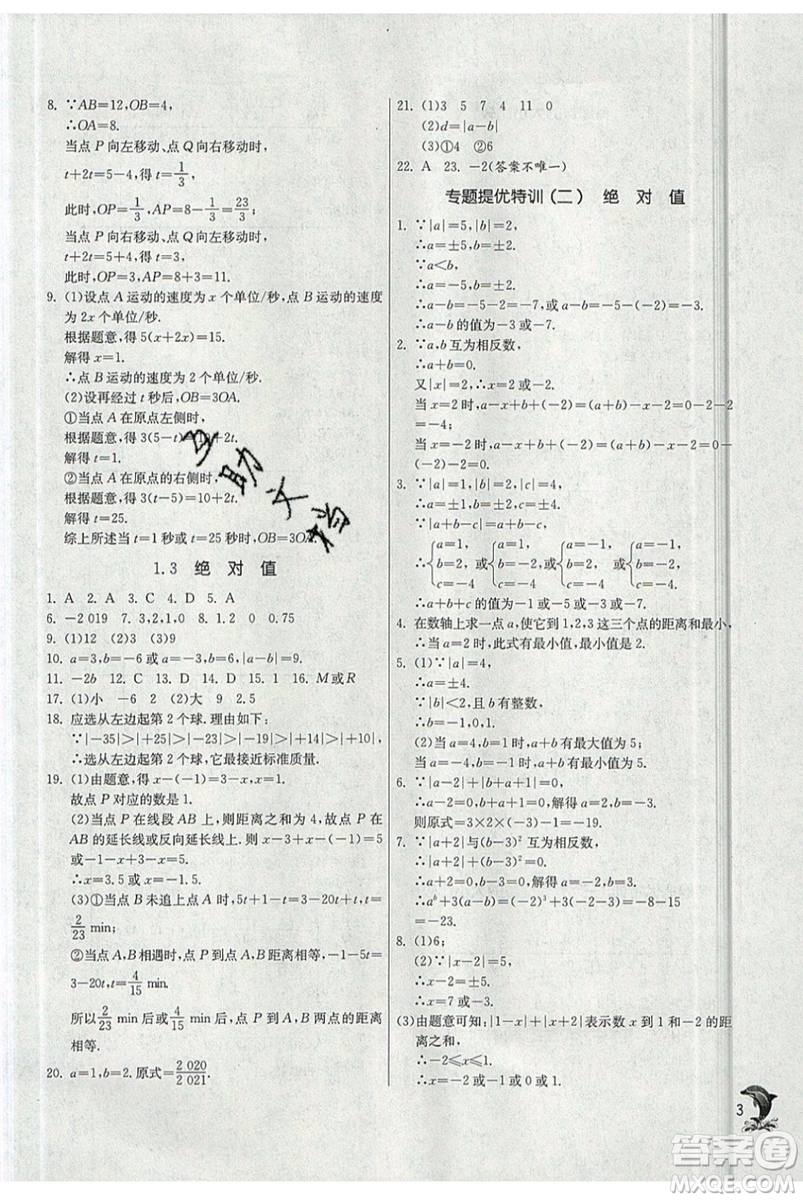 8. ∵AB=12,OB=4,
∴OA=8.
当点 P 向左移动、点 Q 向右移动时,
t+2t=5-4,得 t=1/3,
此时,OP=1/3,AP=8-1/3=23/3;
当点 P 向右移动、点 Q 向右移动时,
t+2t=5+4,得 t=3,
此时,OP=3,AP=8+3=11.
9. (1)设点 A 运动的速度为 x 个单位/秒,点 B 运动的速度
为 2x 个单位/秒.
根据题意,得 5(x+2x)=15.
解得 x=1.
∴点 B 运动的速度为 2 个单位/秒.
(2)设再经过 t 秒后,OB=3OA.
①当点 A 在原点左侧时,
根据题意,得 3(5-t)=10+2t.
解得 t=1.
②当点 A 在原点的右侧时,
根据题意,得 3(t-5)=10+2t.
解得 t=25.
综上所述当 t=1 秒或 t=25 秒时,OB=3OA.
1.3 绝 对 值
1. A 2. A 3. C 4. D 5. A
6. -2 019 7. 3,2,1,0 8. 1.2 0 0.75
9. (1)12 (2)3 (3)9
10. a=3,b=-6 或 a=-3,b=-6 或|a-b|=9.
11. -2b 12. A 13. D 14. D 15. 1 16. M或R
17. (1)小 -6 2 (2)大 9 2.5
18. 应选从左边起第 2 个球. 理由如下:
∵|-35|>|+25|>|-23|>|-17|>|+14|>|+10|,
∴应选从左边起第 2 个球,它最接近标准质量.
19. (1)由题意,得 x-(-1)=3-x,x=1.
故点 P 对应的数是 1.
(2)当点 P 在线段 AB 上,则距离之和为 4,故点 P 在
AB 的延长线或反向延长线上. 则 x-3+x-(-1)=5
或-1-x+3-x=5.
∴x=3.5 或 x=-1.5.
(3)①当点 B 未追上点 A 时,5t+1-t=3-20t,t=
2/23 min;
②当点 A,B 相遇时,点 P 到点 A,B 距离相等,-1-5t
=3-20t,t=4/15 min.
所以 2/23 min 或 4/15 min 时点 P 到 A,B 两点的距离
相等.
20. a=1,b=2. 原式=2 020/2 021.
21. (1)3 5 7 4 11 0
(2)d=|a-b|
(3)①4 ②6
22. A 23. -2(答案不唯一)
专题提优特训(二) 绝 对 值
1. ∵|a|=5,|b|=2,
∴a=±5,b=±2.
∵a<b,
∴a=-5,b=±2.
∴a-b=-5-2=-7或-5-(-2)=-3.
∴a-b 的值为-3 或-7.
2. ∵a,b 互为相反数,
∴a+b=0.
又|x|=2,∴x=±2.
当 x=2 时,a-x+b+(-2)=(a+b)-x-2=0-2-2
=-4;
当 x=-2 时,a-x+b+(-2)=(a+b)-x-2=0-
(-2)-2=0.
3. ∵|a|=1,|b|=3,|c|=4,
∴a=±1,b=±3,c=±4.
∵|a+b-c|=a+b-c,
∴{a=1, b=3, c=-4 或{a=1, b=-3, c=-4 或{a=-1, b=3, c=-4 或{a=-1, b=-3, c=-4
4. 在数轴上求一点 a,使它到 1,2,3 这三个点的距离和最小,
∴当 a=2 时,此式有最小值,最小值是 2.
5. (1)∵|a|=4,
∴a=±4.
∵|b|<2,且 b 有整数,
∴b=-1,0,1.
(2)当 a=4,b=-1 时,a-b 有最大值为 5;
当 a=-4,b=1 时,a-b 有最小值为-5;
6. ∵|a-2|+|b+1|=0,
∴a-2=0,b+1=0,解得 a=2,b=-1.
则原式=3×2×(-3)+(-1)=-19.
7. ∵|a+2|与(b-3)² 互为相反数,
∴|a+2|+(b-3)²=0.
∴a+2=0,b-3=0,解得 a=-2,b=3.
∴aᵇ+3(a-b)=(-2)³+3(-2-3)=-8-15=
-23.
8. (1)6;
(2)∵|x-2|=5,
∴x-2=±5,
∴x=7 或 x=-3.
(3)由题意可知:|1-x|+|x+2|表示数 x 到 1 和-2 的距
离之和,
∴-2≤x≤1.
∴x=-2 或-1 或 0 或 1.
3
互助文档
答案圈
MXQE.COM